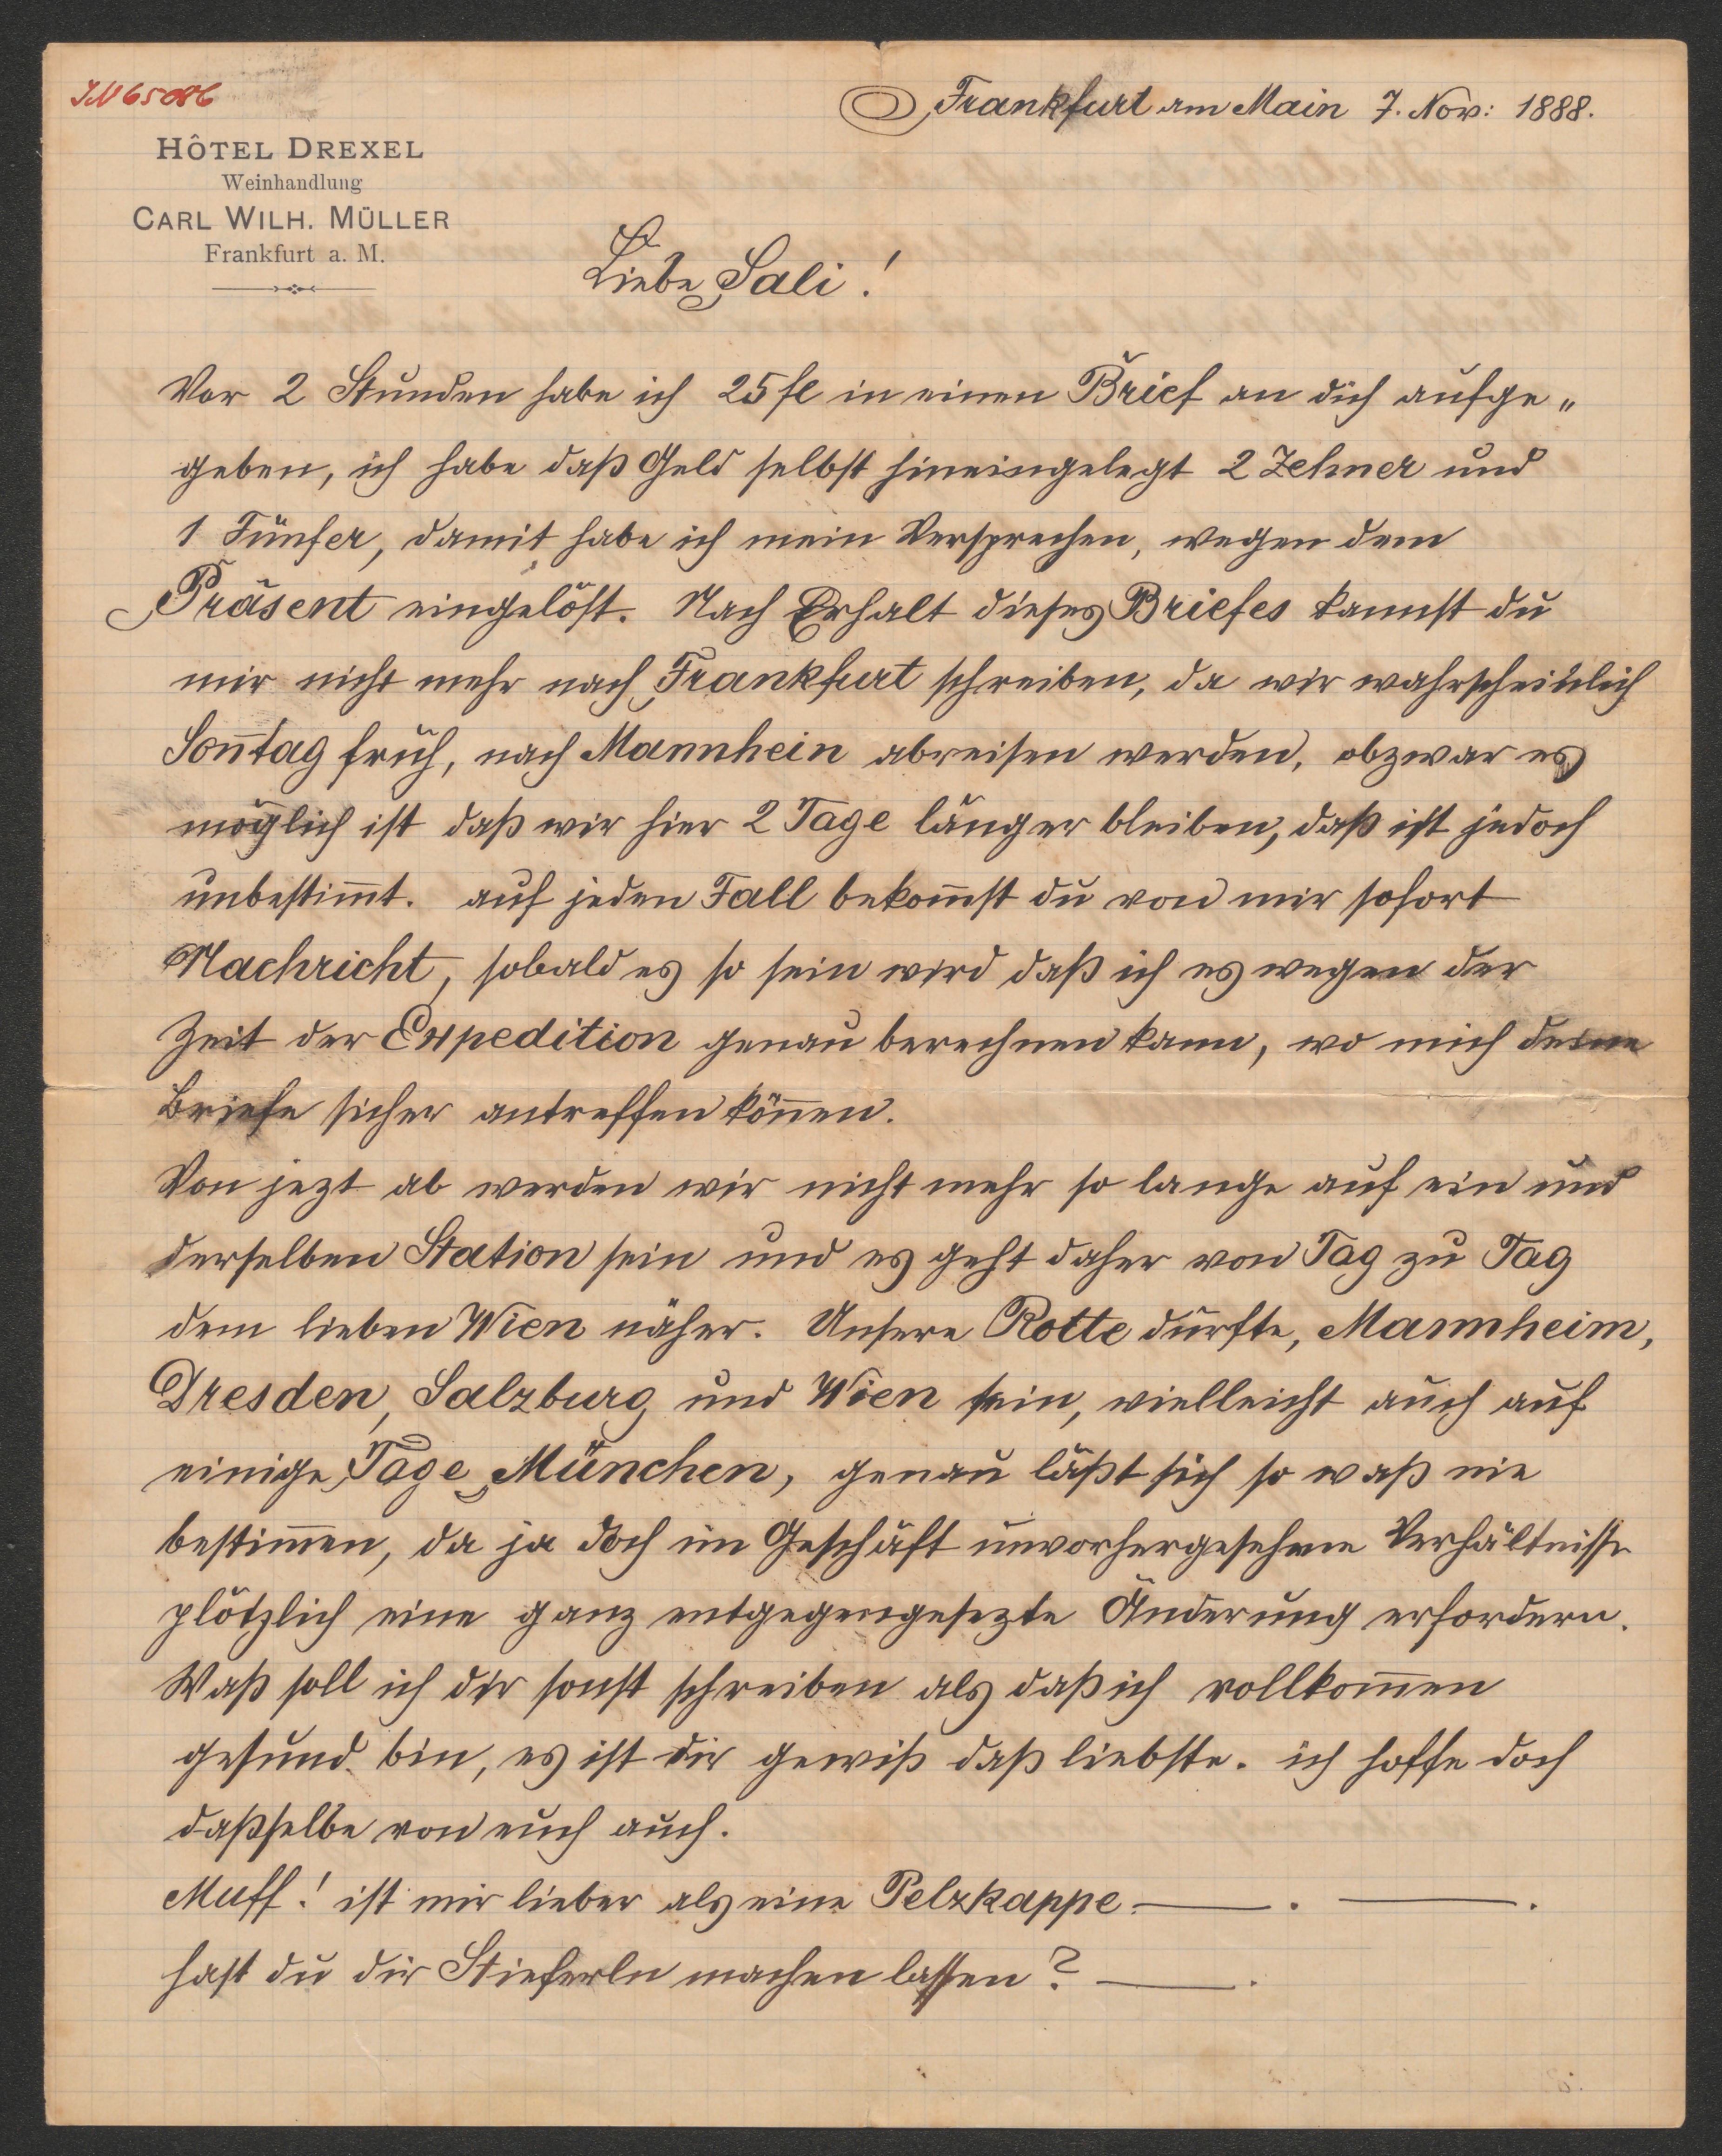 IN 65086
Frankfurt am Main 7. Nov: 1888.
HÔTEL DREXEL
Weinhandlung
CARL WILH. MÜLLER
Frankfurt a. M.
Liebe Sali!
Vor 2 Stunden habe ich 25 fl in einen Brief an dich aufge„
geben, ich habe daß Geld selbst hineingelegt 2 Zehner und
1 Fünfer, damit habe ich mein Versprechen, wegen dem
Präsent eingelöst. Nach Erhalt dieses Briefes kannst du
mir nicht mehr nach Frankfurt schreiben, da wir wahrscheinlich
Son̄tag früh, nach Mannhein abreisen werden, obzwar es
möglich ist daß wir hier 2 Tage länger bleiben, daß ist jedoch
unbestim̄t. auf jeden Fall bekom̄st du von mir sofort
Nachricht, sobald es so sein wird daß ich es wegen der
Zeit der Expedition genau berechnen kann, wo mich deine
Briefe sicher antreffen kön̄en.
Von jezt ab werden wir nicht mehr so lange auf ein und
derselben Station sein und es geht daher von Tag zu Tag
dem lieben Wien näher. Unsere Rotte dürfte, Mannheim,
Dresden, Salzburg und Wien sein, vielleicht auch auf
einige Tage München, genau läßt sich so waß nie
bestim̄en, da ja doch im Geschäft unvorhergesehene Verhältnisse
plötzlich eine ganz entgegengesezte Änderung erfordern.
Waß soll ich dir sonst schreiben als daß ich vollkom̄en
gesund bin, es ist dir gewiß daß liebste. ich hoffe doch
daßselbe von euch auch.
Muff! ist mir lieber als eine Pelzkappe ——. ——.
hast du dir Stieferln machen lassen? ——.